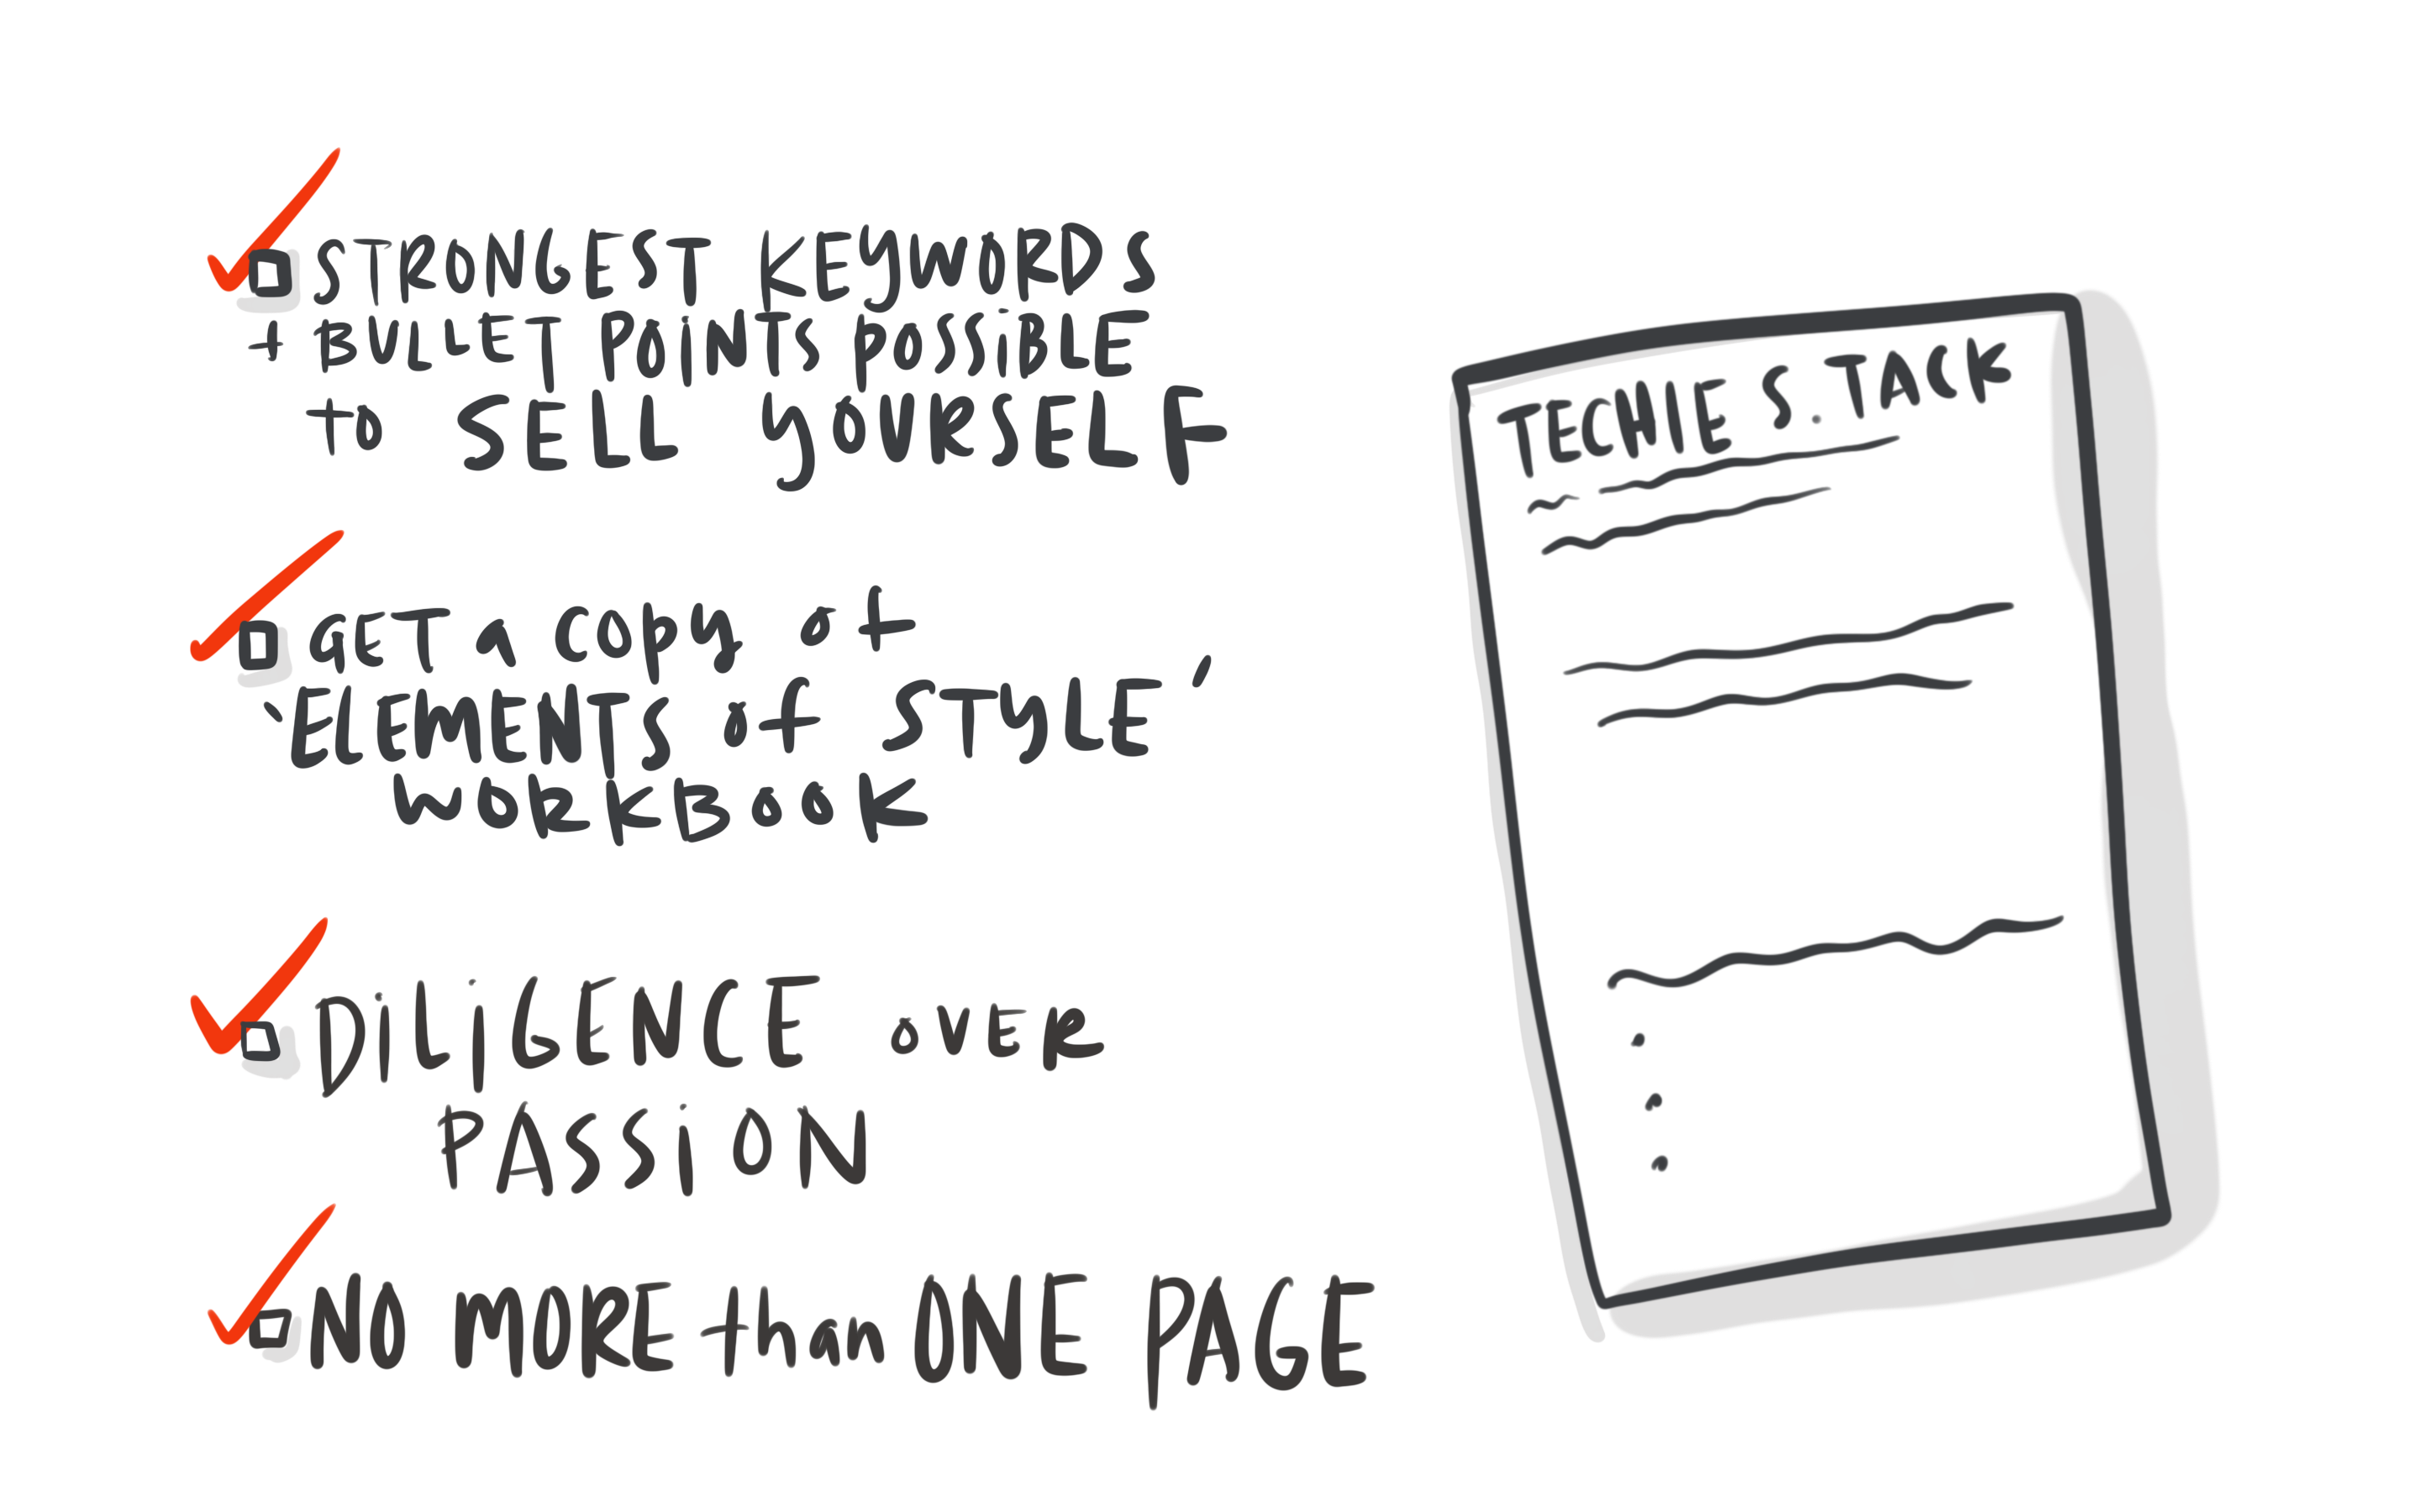 STRONGEST KEYWORDS
+ BULLET POiNTS POSSiBLE
to SELL YOURSELF
GET a copy of
'ELEMENTS of STYLE'
WORKBOOK
DiLiGENCE OVER
PASSiON
NO MORE than ONE PAGE
TECHIE S. TACK